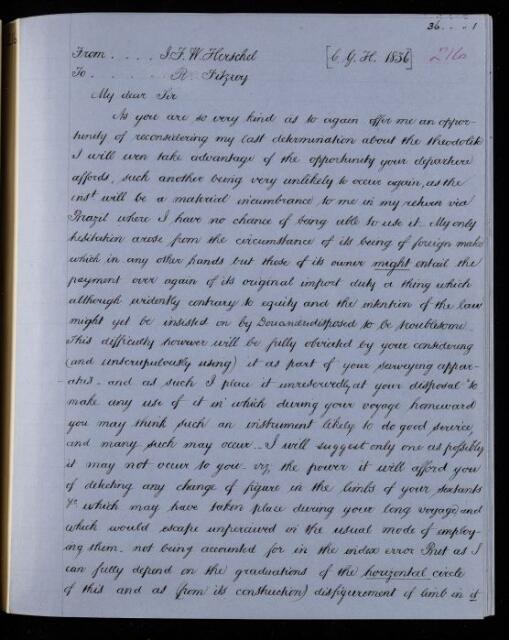 36 .... 1
From .... J.F.W. Herschel [C. G. H. 1836] 216
To ........ R. Fitzroy
My dear Sir
As you are so very kind as to again offer me an oppor-
tunity of reconsidering my last determination about the theodolite
I will even take advantage of the opportunity your departure
affords, such another being very unlikely to occur again, as the
inst will be a material incumbrance to me in my return via
Brazil where I have no chance of being able to use it. My only
hesitation arose from the circumstance of its being of foreign make
which in any other hands but those of its owner might entail the
payment over again of its original import duty a thing which
although evidently contrary to equity and the intention of the law
might yet be insisted on by disposed to be troublesome.
This difficulty however will be fully obviated by your considering
(and unscrupulously using) it as part of your surveying appar-
atus - and as such I place it unreservedly at your disposal to
make any use of it in which during your voyage homeward
you may think such an instrument likely to do good service,
and many such may occur - I will suggest only one as possibly
it may not occur to you - viz, the power it will afford you
of detecting any change of figure in the limbs of your sextants
&c which may have taken place during your long voyage and
which would escape unperceived in the usual mode of employ-
ing them - not being accounted for in the index error But as I
can fully depend on the graduations of the horizontal circle
of this and as (from its construction) disfigurement of limb in it